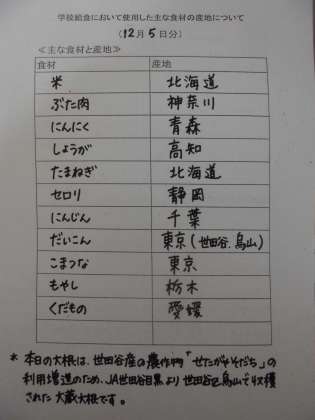 学校給食において使用した主な食材の産地について
(12月5日分)
≪主な食材と産地≫
食材 産地
米 北海道
ぶた肉 神奈川
にんにく 青森
しょうが 高知
たまねぎ 北海道
セロリ 静岡
にんじん 千葉
だいこん 東京(世田谷、烏山)
こまつな 東京
もやし 栃木
くだもの 愛媛
* 本日の大根は、世田谷産の農作物「せたがやそだち」の
利用増進のため、JA世田谷目黒より世田谷区烏山で収穫
された大蔵大根です。